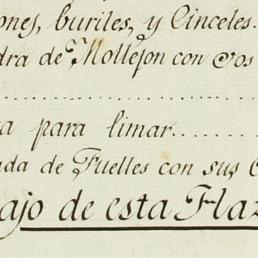 ones, buriles, y Cinceles.
dra de Mollejon con dos
a para limar..........
ada de Fuelles con sus
ajo de esta Plaz